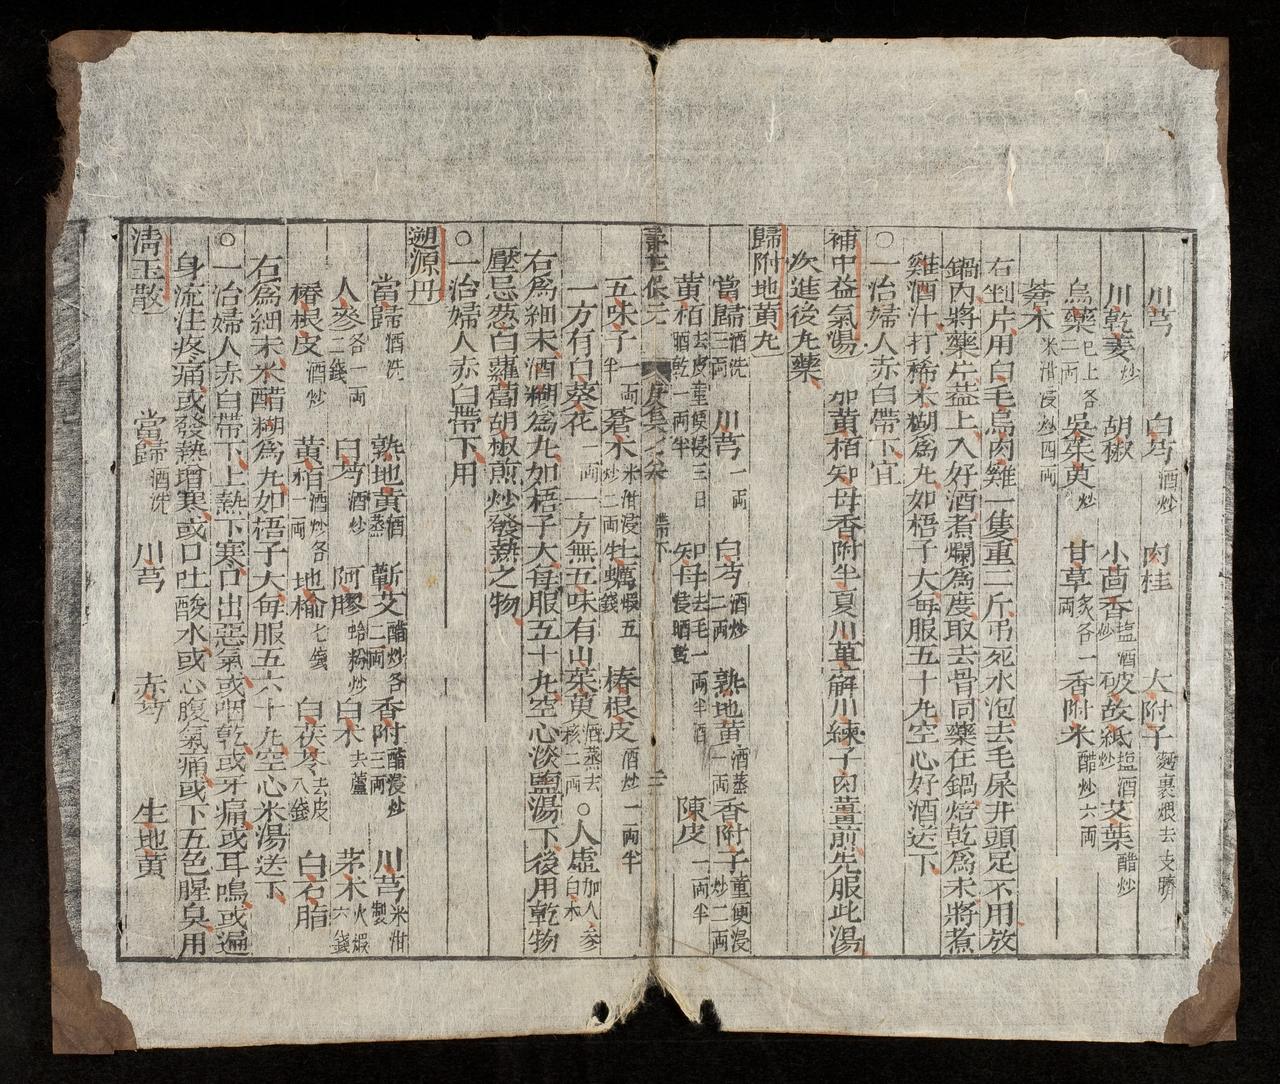 川芎 白芍酒炒 肉桂 大附子麵裹煨去皮臍
川乾姜炒 胡椒 小茴香塩酒炒 破故紙塩酒炒 艾葉醋炒
烏藥已上各二両 吳茱萸炒 甘草炙各一両 香附米醋炒六両
蒼朮米泔浸炒四両
右剉片用白毛烏肉雞一隻重二斤弔死水泡去毛屎并頭足不用放
鍋內將藥片葢上入好酒煮爛為度取去骨同藥在鍋焙乾為末將煮
雞酒汁打稀米糊為丸如梧子大每服五十丸空心好酒送下
○一治婦人赤白帶下宜
補中益氣湯 加黃栢知母香附半夏川萆薢川練子肉薑煎先服此湯
次進後丸藥
歸附地黃丸
當歸酒洗三両 川芎一両 白芍酒炒二両 熟地黃酒蒸一両 香附子童便浸炒二両
黃栢去皮童便浸三日酒乾一両半 知母去毛一両半酒浸晒乾 陳皮一両半
壽世保元 庚集七卷 帶下 三
五味子一両半 蒼朮米泔浸炒二両 牡蠣煅五錢 椿根皮酒炒一両半
一方有白葵花一両 一方無五味有山茱萸酒蒸去核二両 ○人虛加人參白朮
右為細末酒糊為丸如梧子大每服五十丸空心淡鹽湯下後用乾物
壓忌葱白蘿蔔胡椒煎炒發熱之物
○一治婦人赤白帶下用
遡源丹
當歸酒洗 熟地黃酒蒸 蘄艾醋炒各二両 香附醋浸炒三両 川芎米泔製
人參各一両二錢 白芍酒炒 阿膠蛤粉炒 白朮去蘆 茅朮火煅六錢
椿根皮酒炒 黃栢酒炒各一両 地榆七錢 白茯苓去皮八錢 白石脂
右為細末米醋糊為丸如梧子大每服五六十丸空心米湯送下
○一治婦人赤白帶下上熱下寒口出惡氣或咽乾或牙痛或耳鳴或遍
身流注疼痛或發熱增寒或口吐酸水或心腹氣痛或下五色腥臭用
清玉散 當歸酒洗 川芎 赤芍 生地黃